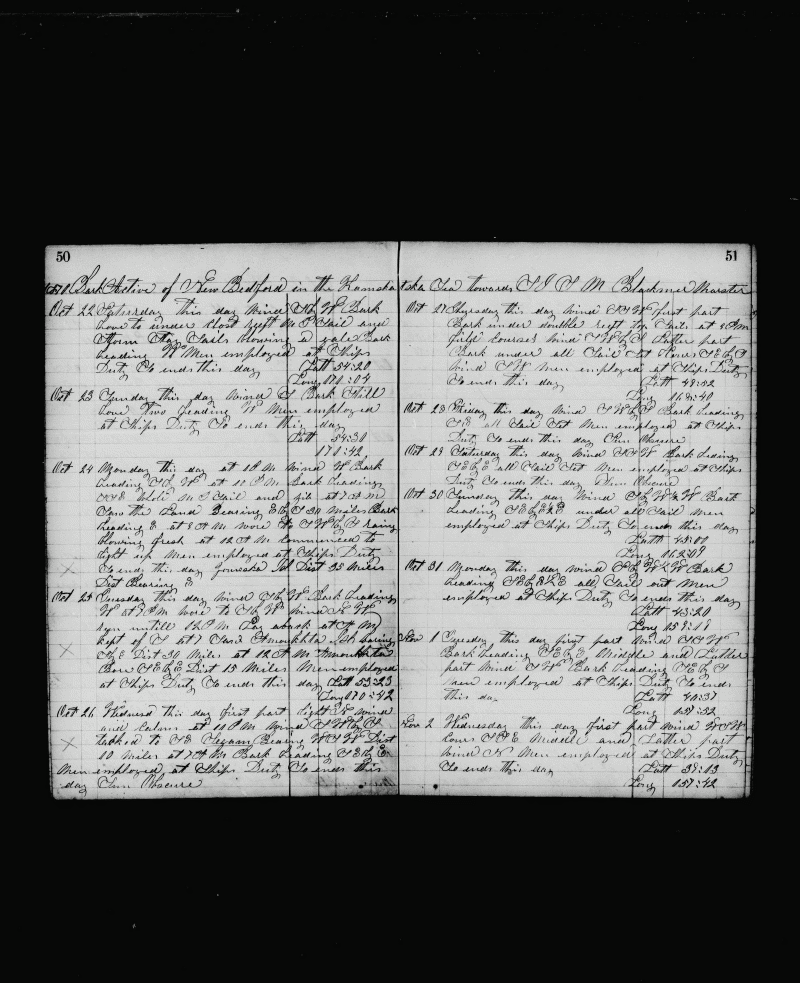 50
Bark Active of New Bedford in the Kamcha
Oct 22 Saturday this day Wind S by W Bark
hove to under Close Reeft M T Sail and
Storm Stay Sails blowing a gale Bark
heading W Men employed at Ships
Duty So ends this day Latt 54:20
Long 170:04
Oct 23 Sunday this day Wind S Bark Still
hove Two heading W Men employed
at Ships Duty So ends this day
Latt 54:30
170:42
Oct 24 Monday this day at 1 P M Wind W Bark
heading S by W at 11 P M Bark heading
whole M T Sail and jib at 7 A M
Saw the Land Bearing E by S 30 Miles Bark
heading at 8 A M wore to S W by S
blowing fresh at 12 A M Commenced to
light up Men employed at Ships Duty
So ends this day Isl Dist 35 Miles
Dist Bearing E
Oct 25 Tuesday this day Wind S by W Bark heading
W at 7 P M wore to S by W Wind
untill 12 P M Lay aback at 4 A M
kept of S at 7 Saw Amoukhta Isl baring
S by E Dist 30 Miles at 12 A M Amoukhta
Bore S E by E Dist 15 Miles Men employed
at Ships Duty So ends this day Latt 53:23
Long 170:42
Oct 26 Wednesd this day first part light Wind
and Calms at 10 P M Wind S W by S
tacked to S E Bearing W S W Dist
10 Miles at 7 A M Bark heading S E by E
Men employed at Ships Duty So ends this
day Sun Obscure
51
tska Sea towards S I S M Blackmer Marster
Oct 27 Thursday this day Wind S S W first part
Bark under double reeft Top Sails at 8 P M
Courses Wind S W by S Latter part
Bark under all Sail Set Cours S E by S
Wind S W Men employed at Ships Duty
So ends this day Latt 49:52
Long 168:40
Oct 28 Friday this day Wind S W by S Bark heading
S E all Sail Set Men employed at Ships
Duty So ends this day Sun Obscure
Oct 29 Saturday this day Wind S S W Bark heading
S E by E all Sail Set Men employed at Ships
Duty So ends this day Sun Obscure
Oct 30 Sunday this day Wind S by W & W Bark
heading S E by E & E under all Sail Men
employed at Ships Duty So ends this day
Latt 45:00
Long 162:09
Oct 31 Monday this day Wind S by W & W Bark
heading S E by E & E all Sail out Men
employed at Ships Duty So ends this day
Latt 43:20
Long 159:19
Nov 1 Tuesday this day first part Wind S S W
Bark heading S E by E Middle and Latter
part Wind S W Bark heading S E by S
men employed at Ships Duty So ends
this day Latt 40:37
Long 157:52
Nov 2 Wednesday this day first part Wind W S W
Cours S S E Middle and Latter part
Wind N Men employed at Ships Duty
So ends this day Latt 39:13
Long 157:42